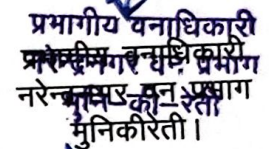 प्रभागीय वनाधिकारी
प्रभागीय वनाधिकारी
नरेन्द्रनगर वन प्रभाग
नरेन्द्रनगर वन प्रभाग
मुनि-की-रेती
मुनिकीरेती।